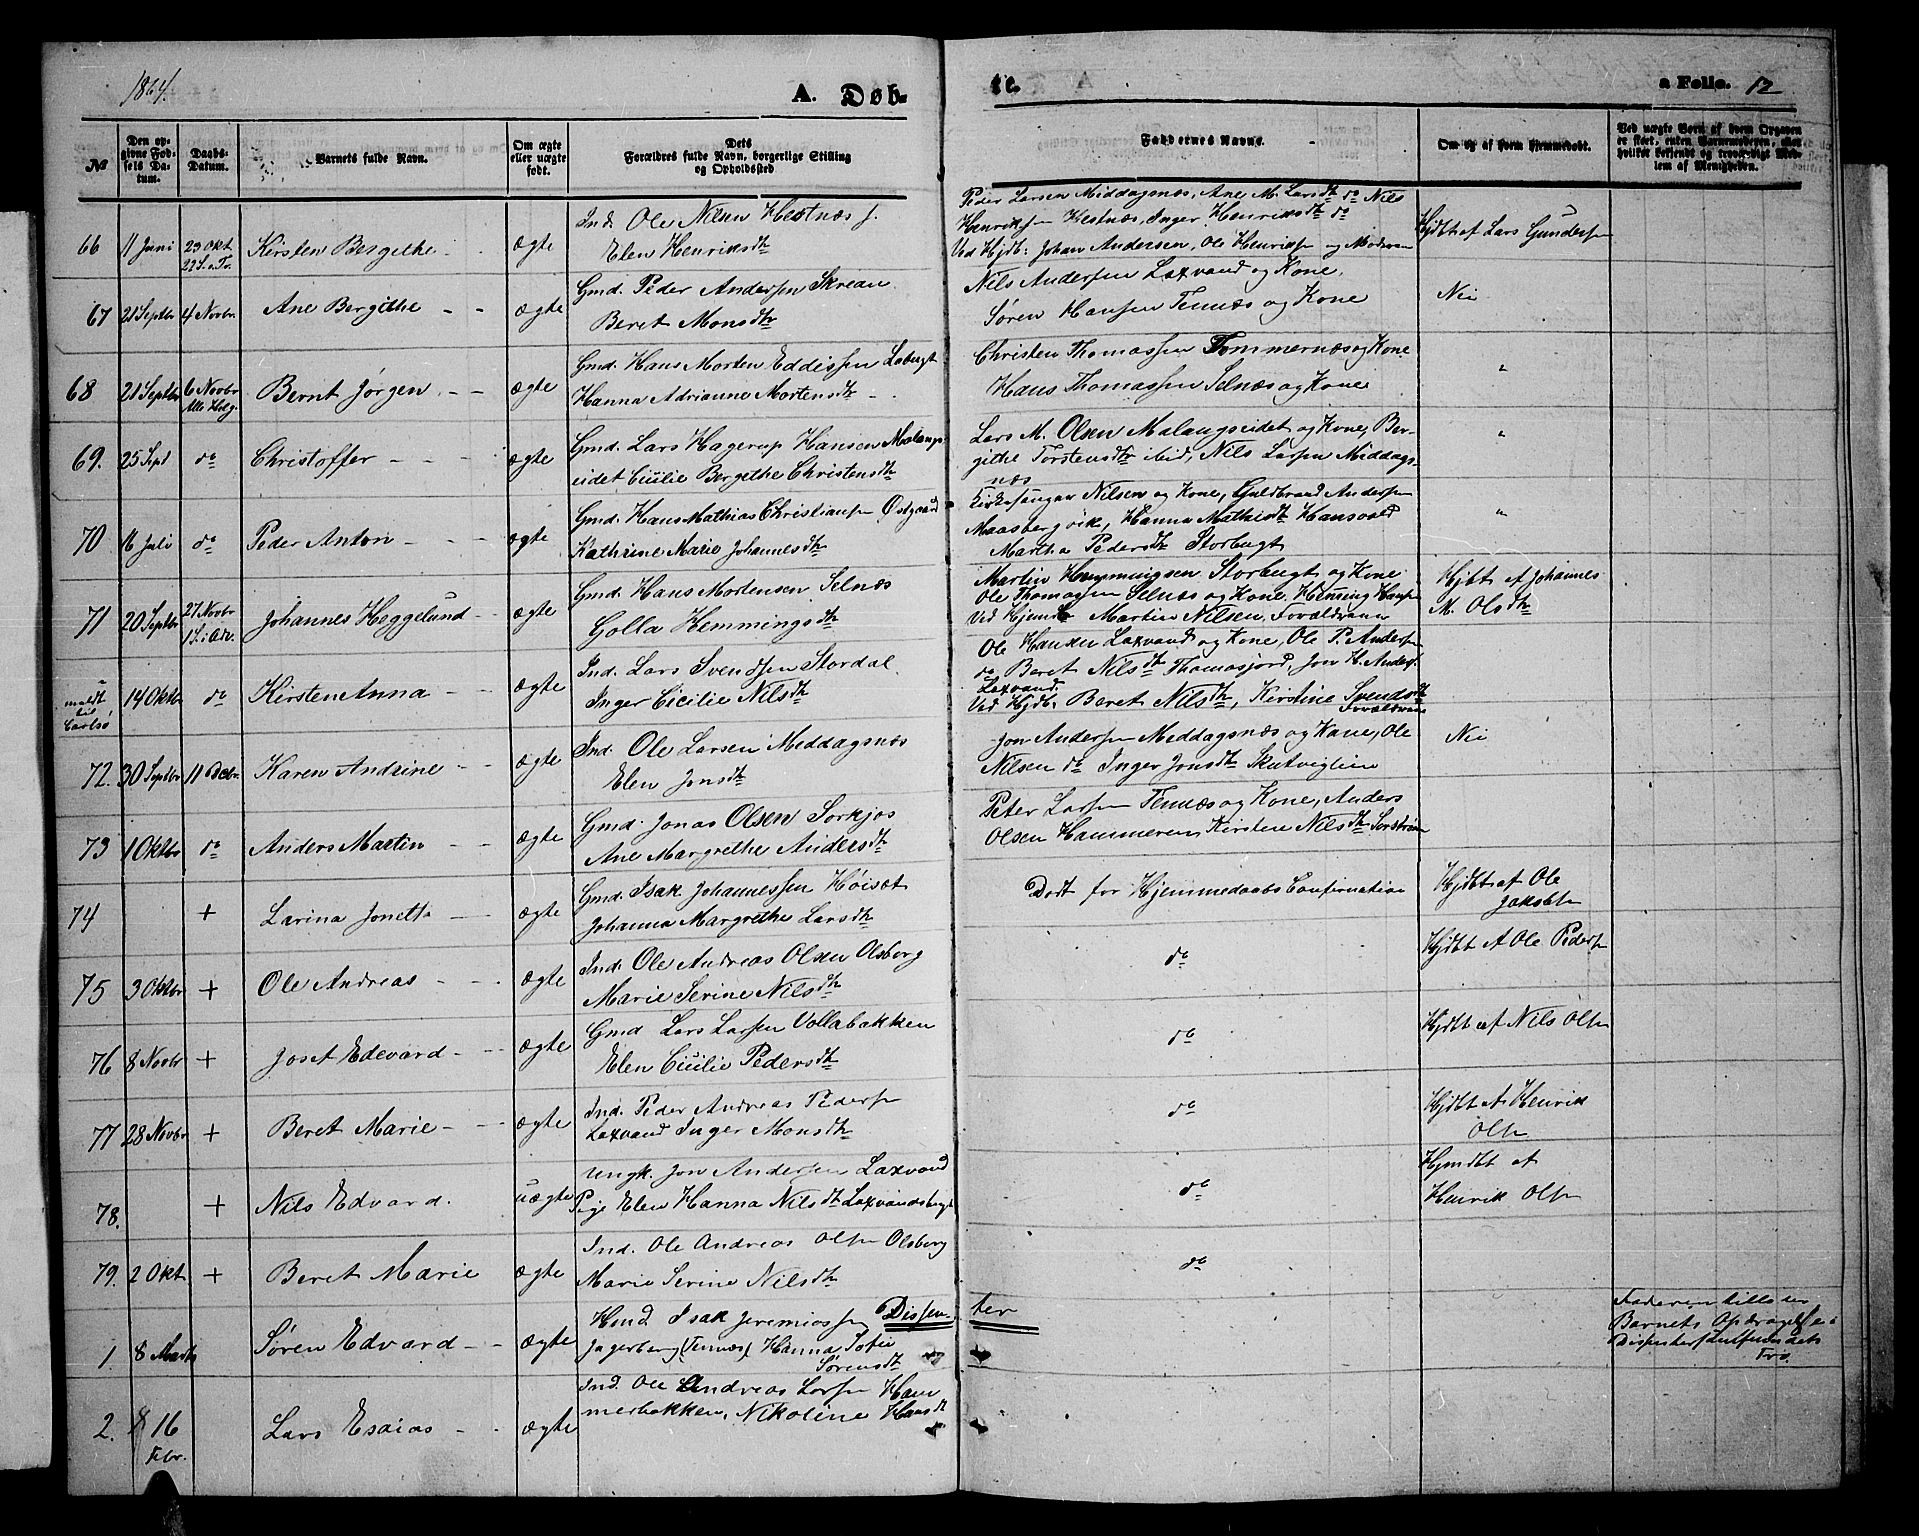 1864.
A. Døb-
te.
a Folio. 12
№
Den op-
givne Fød-
sels Da-
tum.
Daabs-
Datum.
Barnets fulde Navn.
Om ægte
eller uægte
født.
Dets
Forældres fulde Navn, borgerlige Stilling
og Opholdssted
Faddernes Navne.
Om og af hvem hjemmedøbt.
Ved uægte Børn af hvem Opgaven
er skeet, enten Barnemoderen, eller
hvilket bekjendt og troværdigt Med-
lem af Menigheden.
66 11 Juni 23 Okt 22 S. e. Tr. Kirsten Bergithe ægte
Ind. Ole Nilsen Hestnæs
Elen Henriksdtr
Peder Larsen Middagsnæs, Ane M. Larsdtr do Nils
Henriksen Hestnæs, Inger Henriksdtr do
Ved Hjdb: Johan Andersen, Ole Henriksen og Moderen
Hjdbt af Lars Gundersen
67 21 Septbr 4 Novbr Ane Bergithe ægte
Gmd. Peder Andersen Skrean
Beret Monsdtr
Nils Andersen Laxvand og Kone,
Søren Hansen Tennæs og Kone
Nei
68 21 Septbr 6 Novbr Alle Helg. Bernt Jørgen ægte
Gmd. Hans Morten Eddissen
Hanna Adrianne Mortensdtr
Christen Thomassen Tømmernæs og Kone
Hans Thomassen Selnæs og Kone
"
69. 25 Sept do Christoffer ægte
Gmd. Lars Hagerup Hansen Malangs
eidet Cicilie Bergithe Christensdtr
Lars M. Olsen Malangseidet og Kone, Ber-
githe Torstensdtr ibid, Nils Larsen Middags-
næs
"
70 16 Juli do Peder Anton ægte
Gmd. Hans Mathias Christiansen Østgaard
Kathrine Marie Johannesdtr
Kirkesanger Nilsen og Kone, Guldbrand Andersen
Maasbergvik, Hanna Mathisdtr Hansvold
Martha Pedersdtr Storbugt
"
71 20 Septbr 27 Novbr 1 S. i Adv. Johannes Heggelund ægte
Gmd. Hans Mortensen Selnæs
Golla Hemmingsdtr
Martin Hemmingsen Storbugt og Kone
Ole Thomassen Selnæs og Kone, Hemming Hansen
Ved Hjemdb Martin Nilsen, Forældrene
Hjdbt af Johannes
M. Olsdtr
meldt
til
Carlsø
14 Oktbr do Kirsten Anna ægte
Ind. Lars Svendsen Stordal
Inger Cicilie Nilsdtr
Ole Hansen Laxvand og Kone, Ole P. Andersen
do Beret Nilsdtr Thomasjord, Jon H. Anders.
Laxvand.
Ved Hjdb: Beret Nilsdtr, Kirstine Svendsdtr
Forældrene
72. 30 Septbr 11 Decbr. Karen Andrine ægte
Ind. Ole Larsen Middagsnæs
Elen Jonsdtr
Jon Andersen Middagsnæs og Kone, Ole
Nilsen do Inger Jonsdtr Skutviglien
Nei
73 1 Oktbr do Anders Martin ægte
Gmd. Jonas Olsen Sørkjos
Ane Margrethe Andersdtr
Peter Larsen Tennæs og Kone, Anders
Olsen Hammeren, Kirsten Nilsdtr
74 + Larina Jonetta ægte
Gmd. Isak Johannessen Høiset
Johanna Margrethe Larsdtr
Død for Hjemmedaabs Confirmation
Hjdbt af Ole
Jakobsen
75 3 Oktbr + Ole Andreas ægte
Ind. Ole Andreas Olsen Olsborg
Marie Serine Nilsdtr
do
Hjdbt af Ole Pedersen
76 8 Novbr + Joset Edevard ægte
Gmd Lars Larsen Vollabakken
Elen Cicilie Pedersdtr
do
Hjdbt af Nils Olsen
77 28 Novbr + Beret Marie ægte
Ind. Peder Andreas Pedersen
Laxvand Inger Monsdtr
do
Hjdbt af Henrik
Olsen
78. + Nils Edvard. uægte
Ungk. Jon Andersen Laxvand
Pige Elen Hanna Nilsdtr Laxvandsbugt
do
Hjmdbt af
Henrik Olsen
79. 2 Okt + Beret Marie ægte
Ind. Ole Andreas Olsen Olsborg
Marie Serine Nilsdtr
do
Dissenter
1. 8 Marts Søren Edvard ægte
Hmd Isak Jeremiassen
Jagerberg (Tennæs) Hanna Sofie
Sørensdtr
Faderen
Barnets Opdragelse i
Dissentersamfundets
Tro.
2. 16 Febr. Lars Esaias ægte
Ind. Ole Andreas Larsen Ham
merbakken, Nikoline Hansdtr